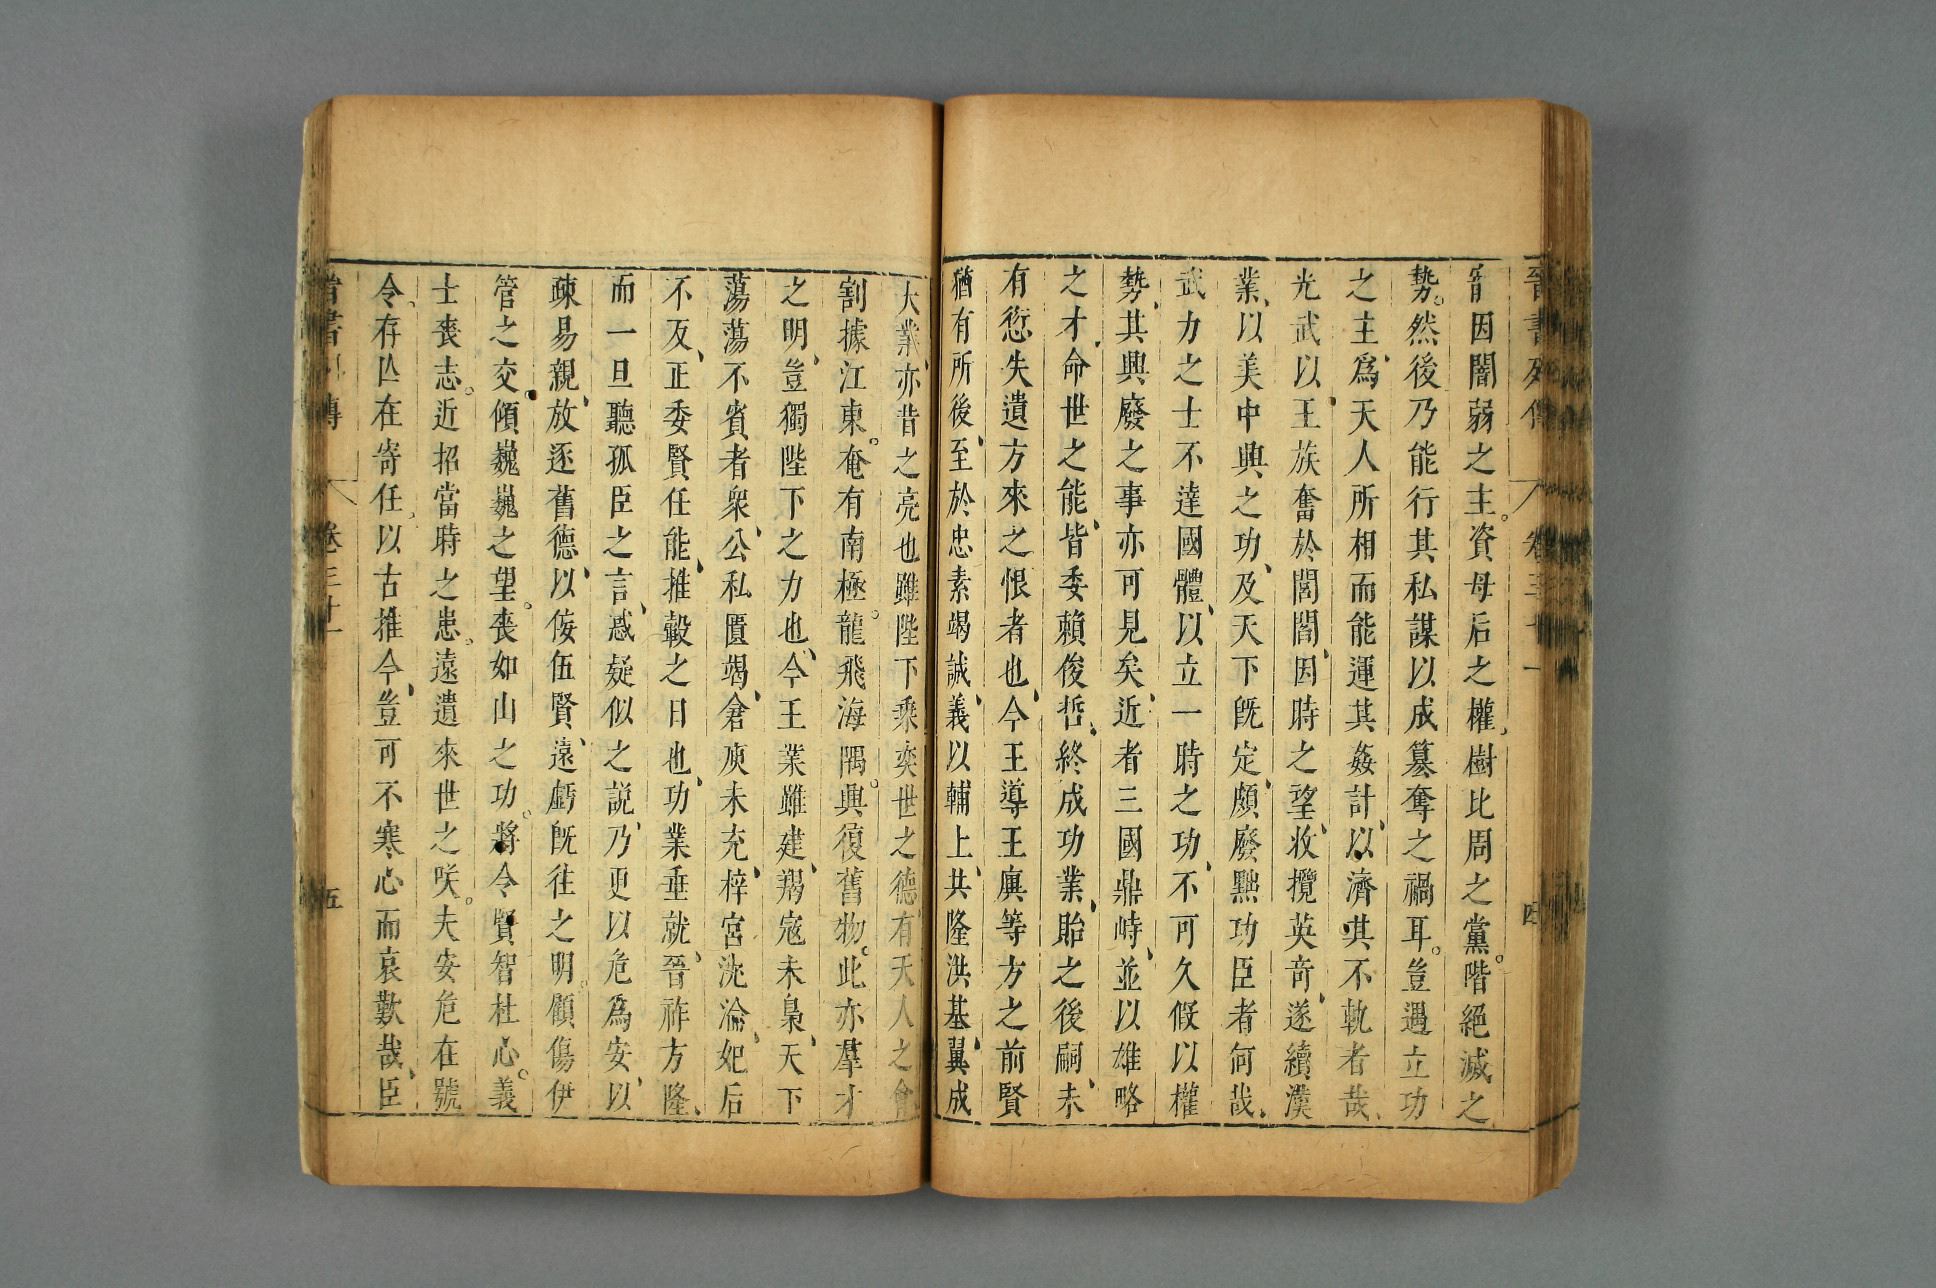 晉書列傳 卷三十一 四
甯因闇弱之主。資母后之權、樹比周之黨。階絕滅之
勢。然後乃能行其私謀以成篡奪之禍耳。豈遇立功
之主、爲天人所相而能運其姦計、以濟其不軌者哉、
光武以王族奮於閭閻、因時之望、收攬英奇、遂續漢
業、以美中興之功、及天下旣定、頗廢黜功臣者何哉、
武力之士不達國體、以立一時之功、不可久假以權
勢、其興廢之事亦可見矣、近者三國鼎峙、並以雄略
之才、命世之能、皆委賴俊哲、終成功業、貽之後嗣、未
有愆失遺方來之恨者也、今王導王廙等方之前賢
猶有所後、至於忠素竭誠、義以輔上、共隆洪基、翼成
大業、亦昔之亮也雖陛下乘奕世之德、有天人之會
割據江東。奄有南極。龍飛海隅。興復舊物。此亦羣才
之明、豈獨陛下之力也、今王業雖建、羯寇未梟、天下
蕩蕩不賓者衆、公私匱竭、倉庾未充、梓宮沈淪、妃后
不反、正委賢任能、推轂之日也、功業垂就、晉祚方隆、
而一旦聽孤臣之言、惑疑似之說、乃更以危爲安、以
疎易親、放逐舊德、以佞伍賢、遠虧旣往之明。顧傷伊
管之交、傾巍巍之望。喪如山之功。將令賢智杜心。義
士喪志。近招當時之患。遠遺來世之咲。夫安危在號
令。存亾在寄任、以古推今、豈可不寒心而哀歎哉、臣
晉書列傳 卷三十一 五